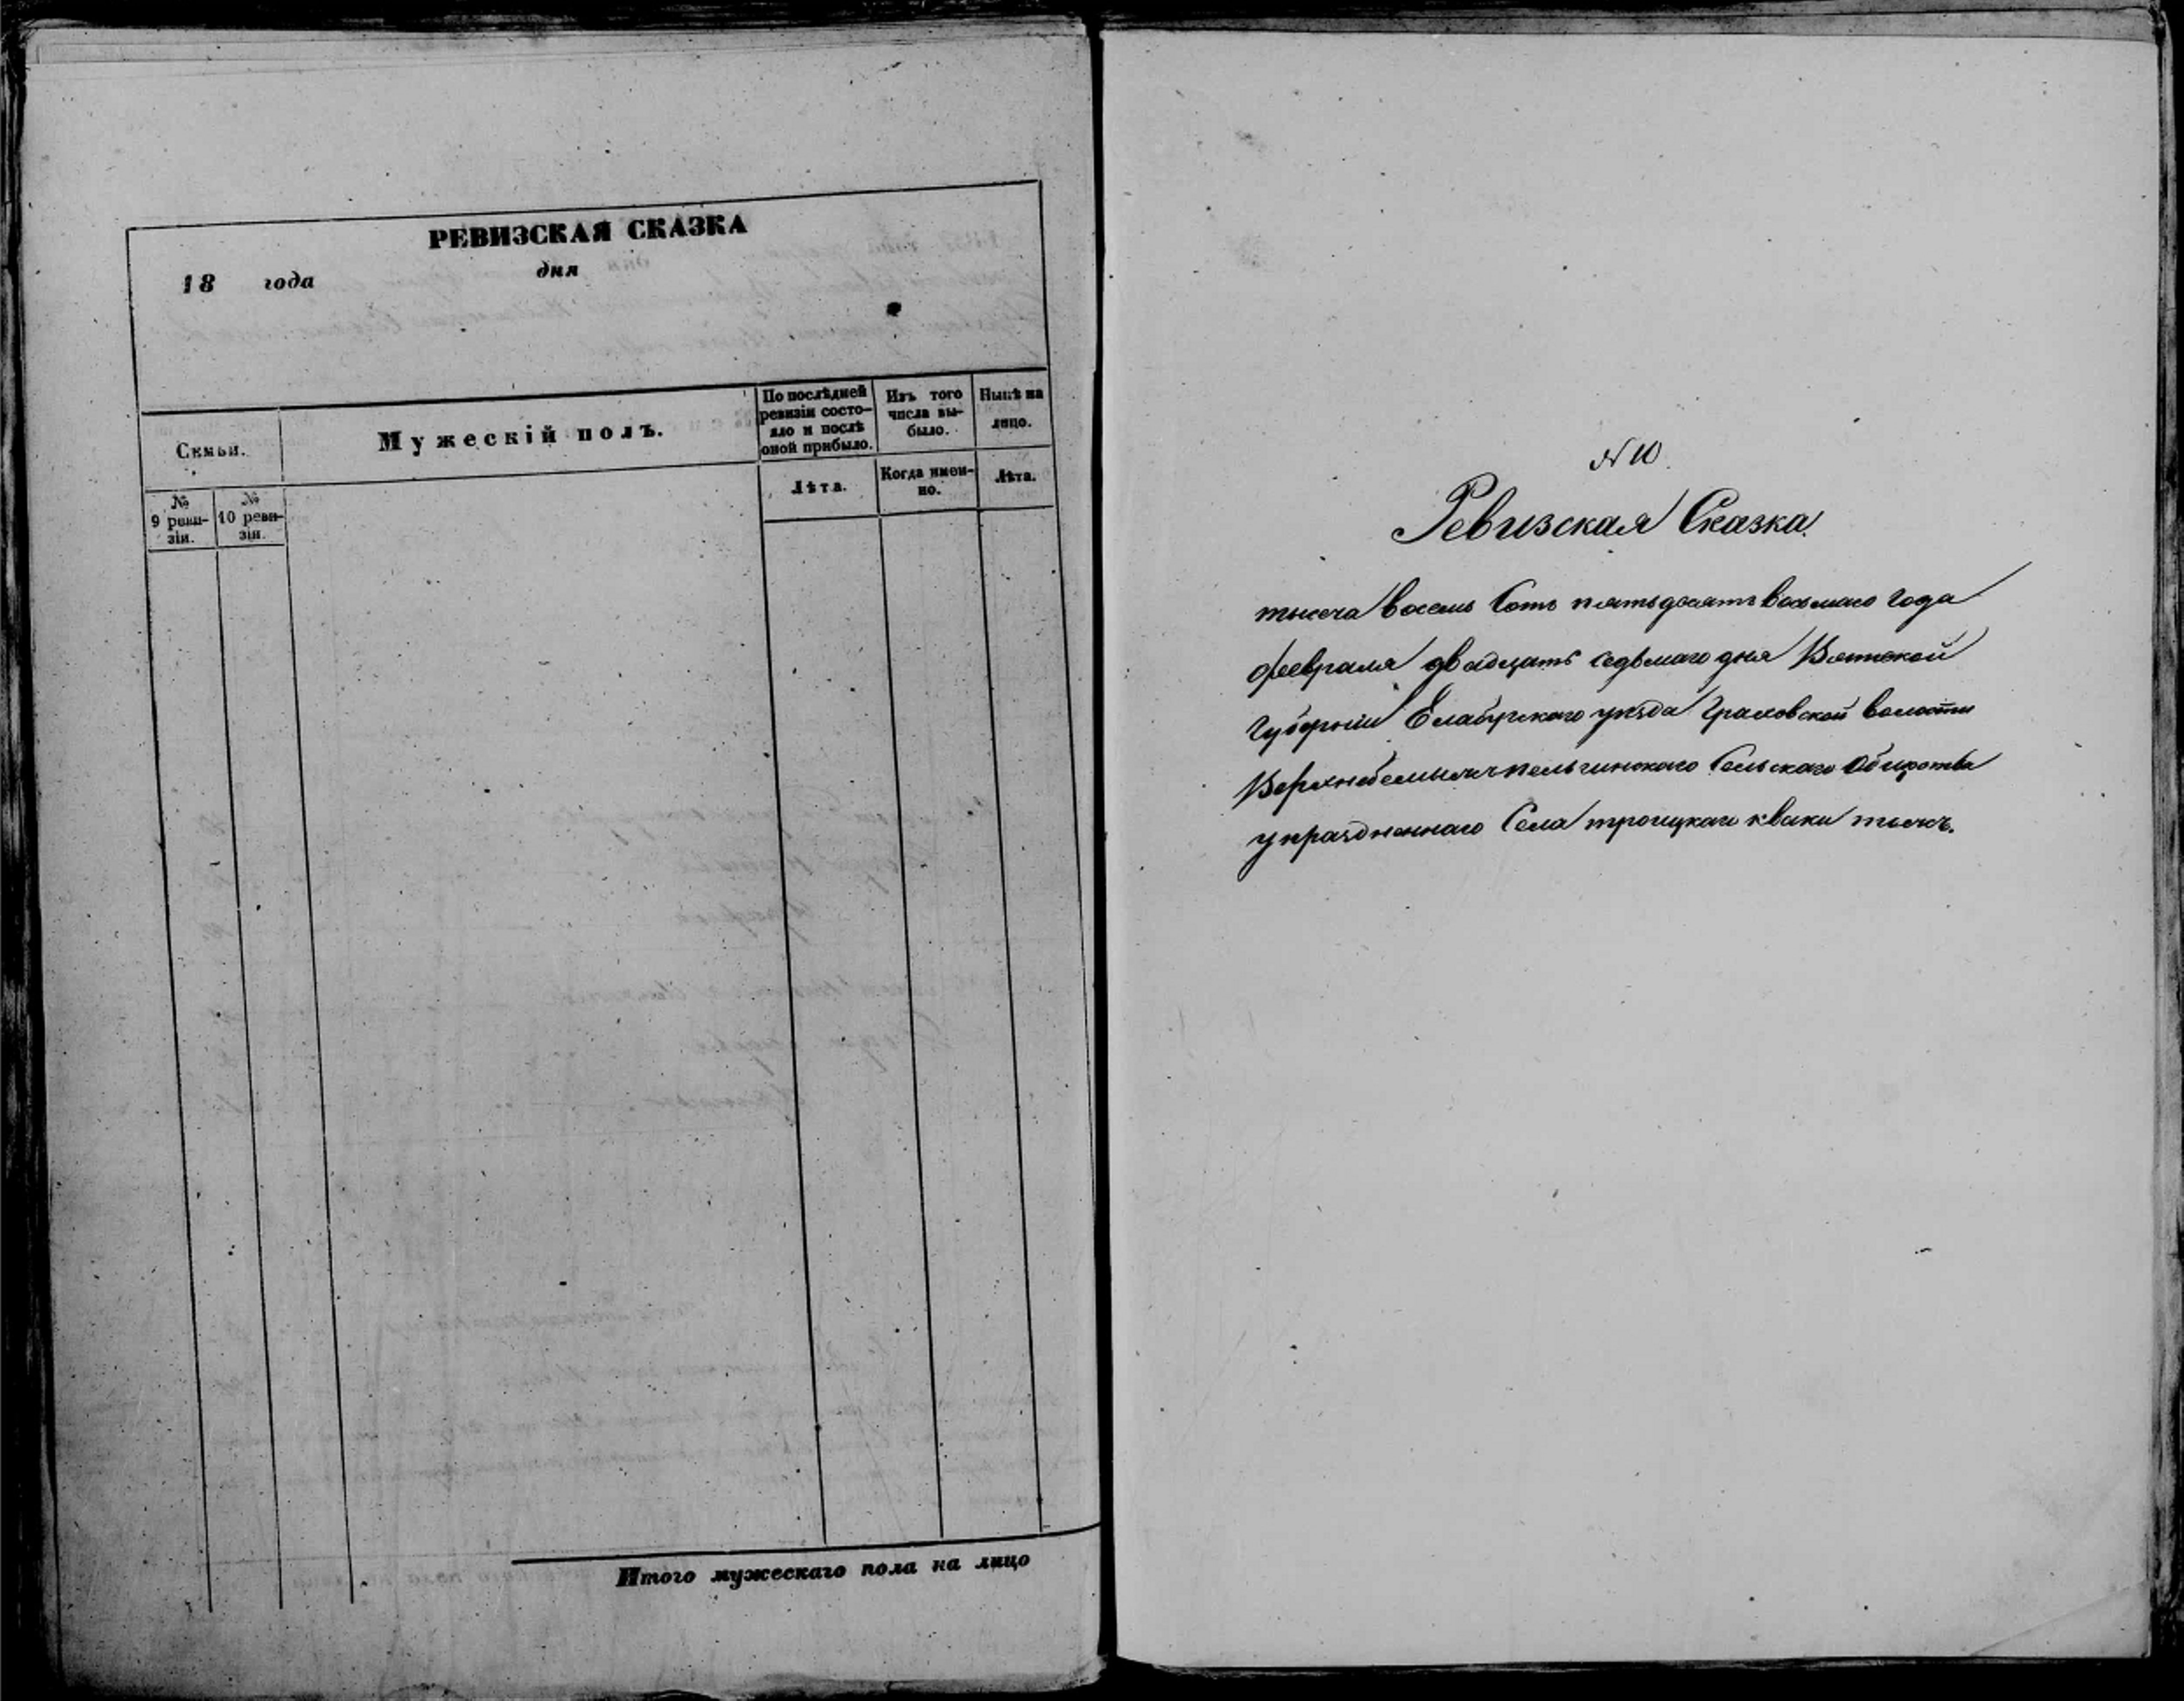 РЕВИЗСКАЯ СКАЗКА
18 года дня
Семьи.
Мужескій полъ.
По послѣдней ревизіи состо-
яло и послѣ
оной прибыло.
Изъ того
числа вы-
было.
Нынѣ на
лицо.
№
9 реви-
зіи.
№
10 реви-
зіи.
Лѣта.
Когда имен-
но.
Лѣта.
Итого мужескаго пола на лицо
№ 10
Ревизская Сказка
тысеча восемь Сотъ пятьдесятъ восьмаго года
февраля двадцать седьмаго дня Вятской
Губерніи Елабугскаго уѣзда Граховской волости
Сельскаго Общества
упраздненнаго Села троицкаго